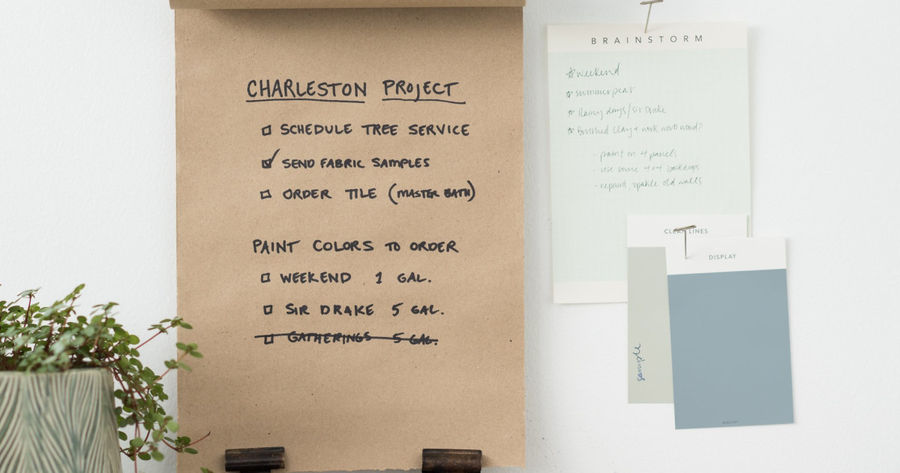 CHARLESTON PROJECT
SCHEDULE TREE SERVICE
SEND FABRIC SAMPLES
ORDER TILE (MASTER BATH)
PAINT COLORS TO ORDER
WEEKEND 1 GAL.
SIR DRAKE 5 GAL.
GATHERINGS 5 GAL.
BRAINSTORM
weekend
summer pear
Rainy days/sir Drake
Brushed clay + work
- paint on 4 panels
- use some
- repaint old walls
LINES
DISPLAY
sample